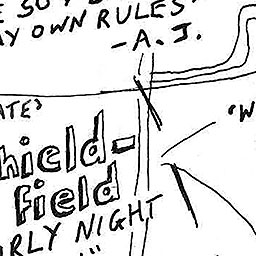 E SO
AY OWN RULES"
-A.J.
ATE>
"W
hield-
field
ARLY NIGHT